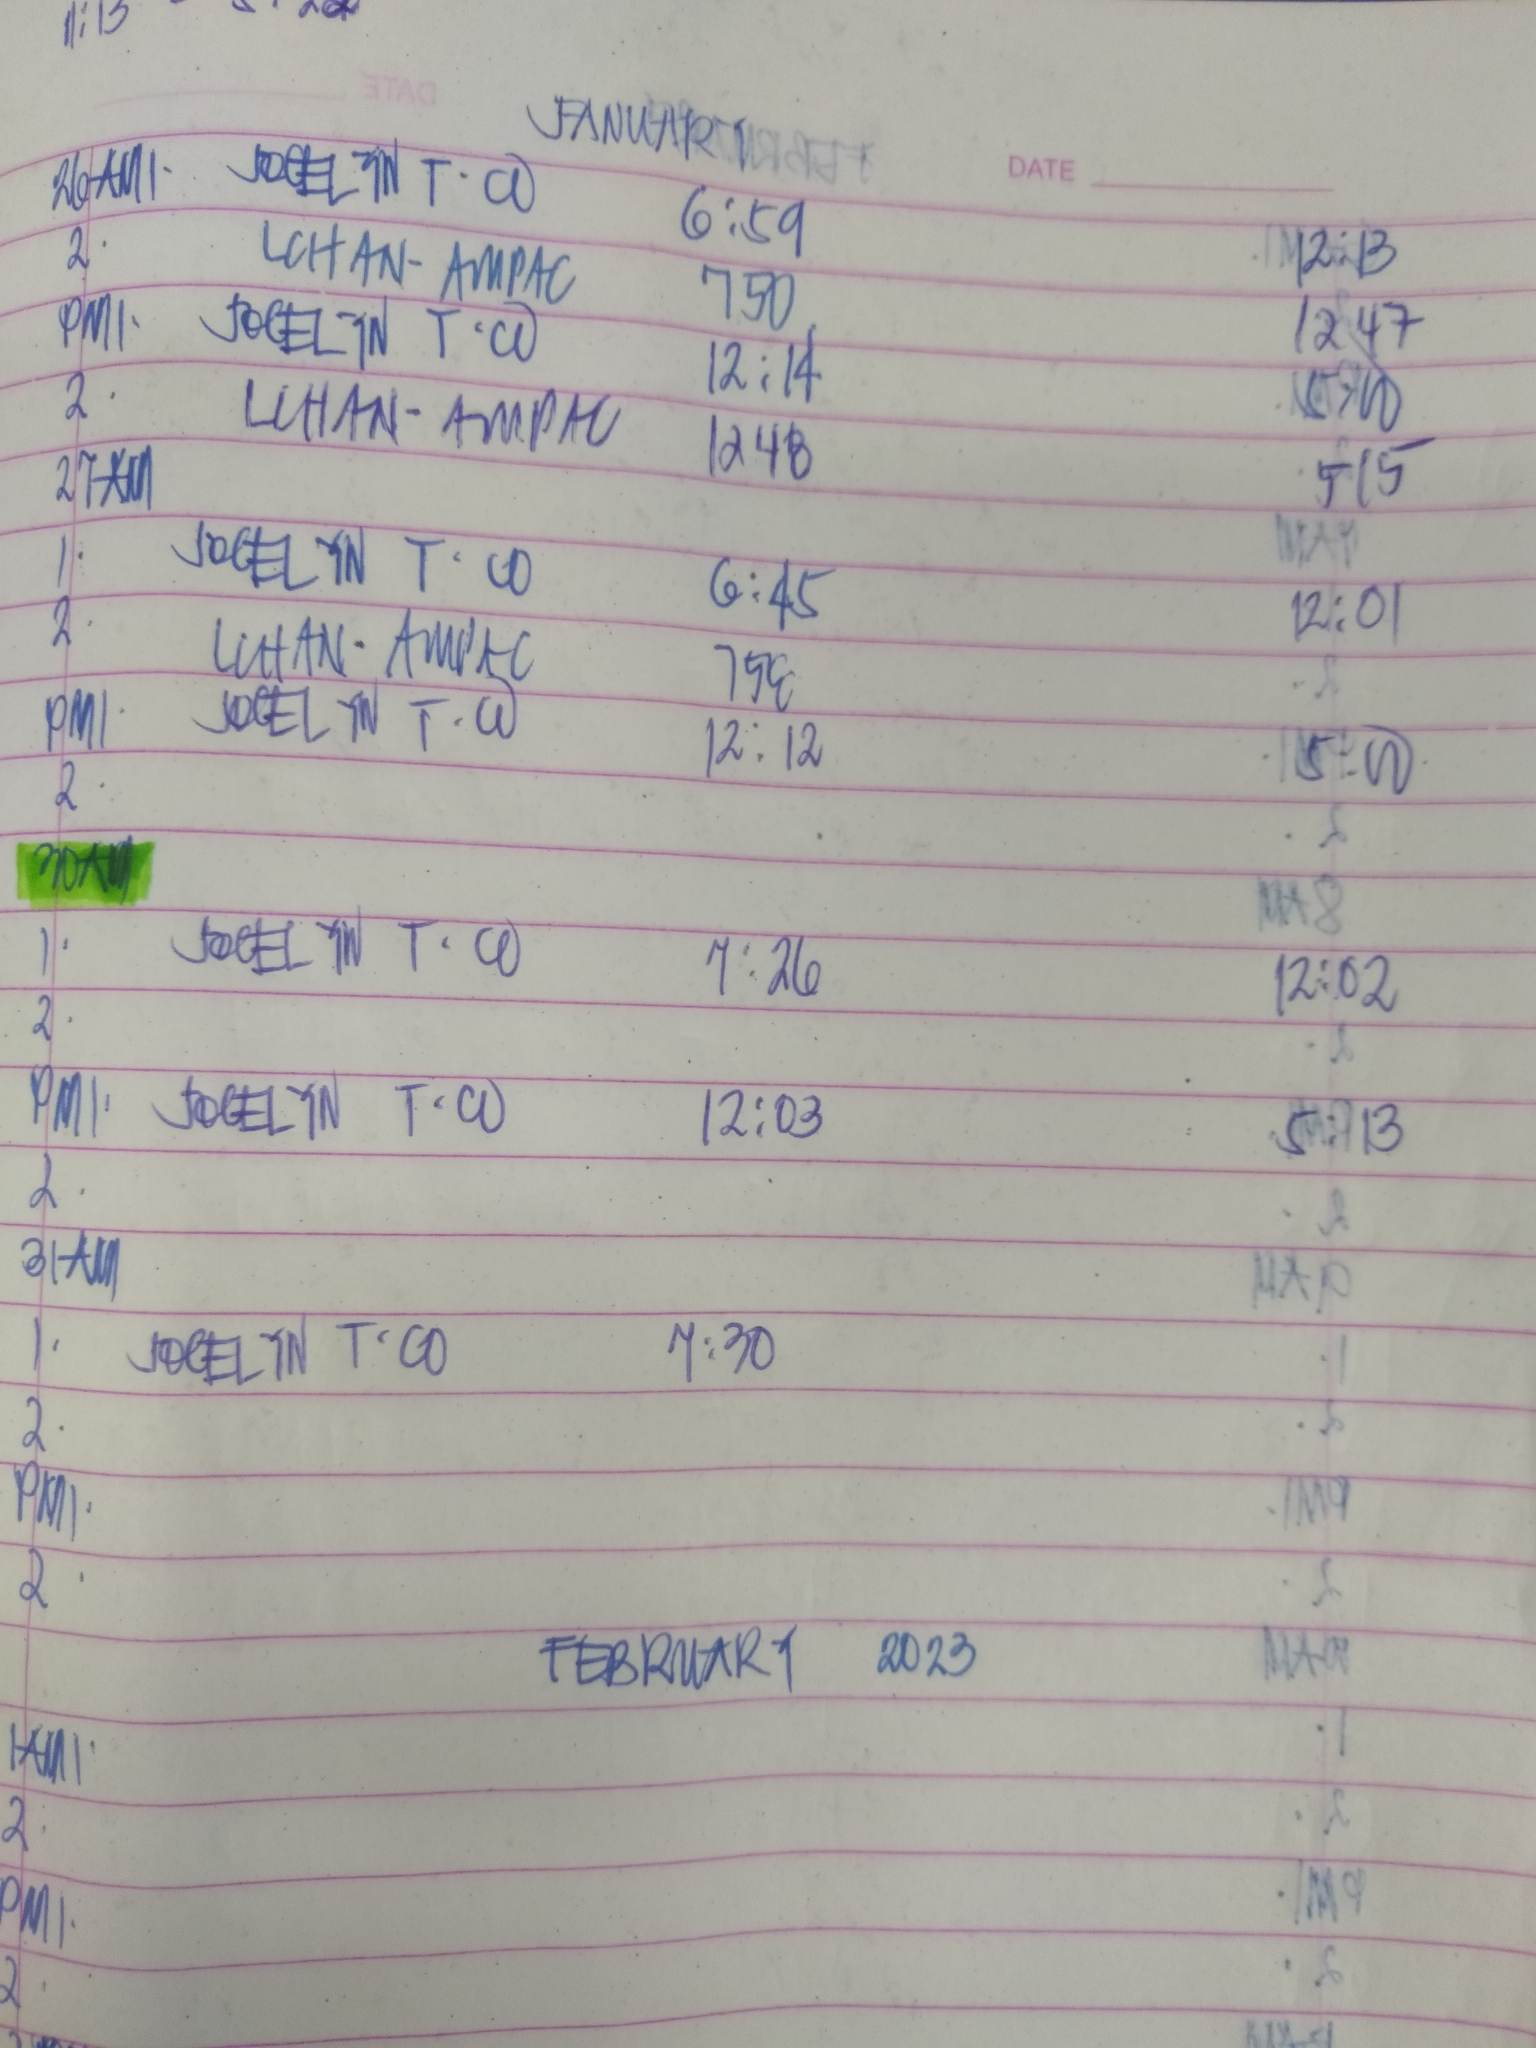 11:13
JANUARY
DATE
26AM1. JOCELYN T. CO 6:59 12:13
2. LCHAN-AMPAC 750 1247
PM1. JOCELYN T. CO 12:14 5:00
2. LCHAN-AMPAC 1248 515
27AM
1. JOCELYN T. CO 6:45 12:01
2. LCHAN-AMPAC
PM1. JOCELYN T. CO 12:12 5:00
2.
30AM
1. JOCELYN T. CO 7:26 12:02
2.
PM1. JOCELYN T. CO 12:03 5:13
2.
31AM
1. JOCELYN T. CO 7:30
2.
PM1.
2.
FEBRUARY 2023
1AM1.
2.
PM1.
2.